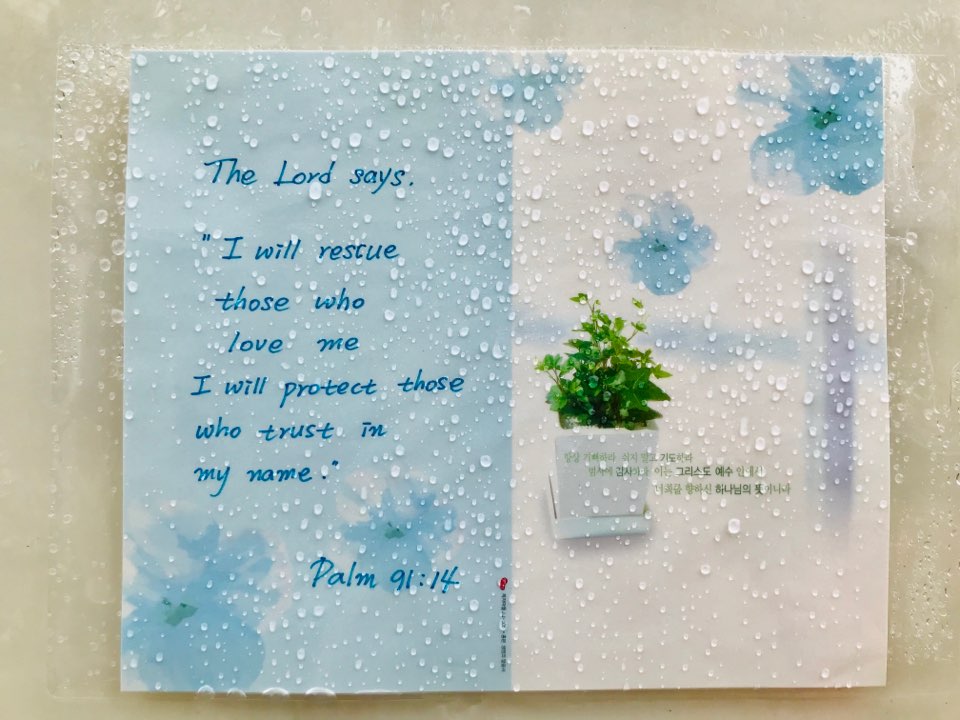 The Lord says.
" I will rescue
those who
love me
I will protect those
who trust in
my name."
Palm 91:14
항상 기뻐하라 쉬지 말고 기도하라
범사에 감사하라 이는 그리스도 예수 안에서
너희를 향하신 하나님의 뜻이니라